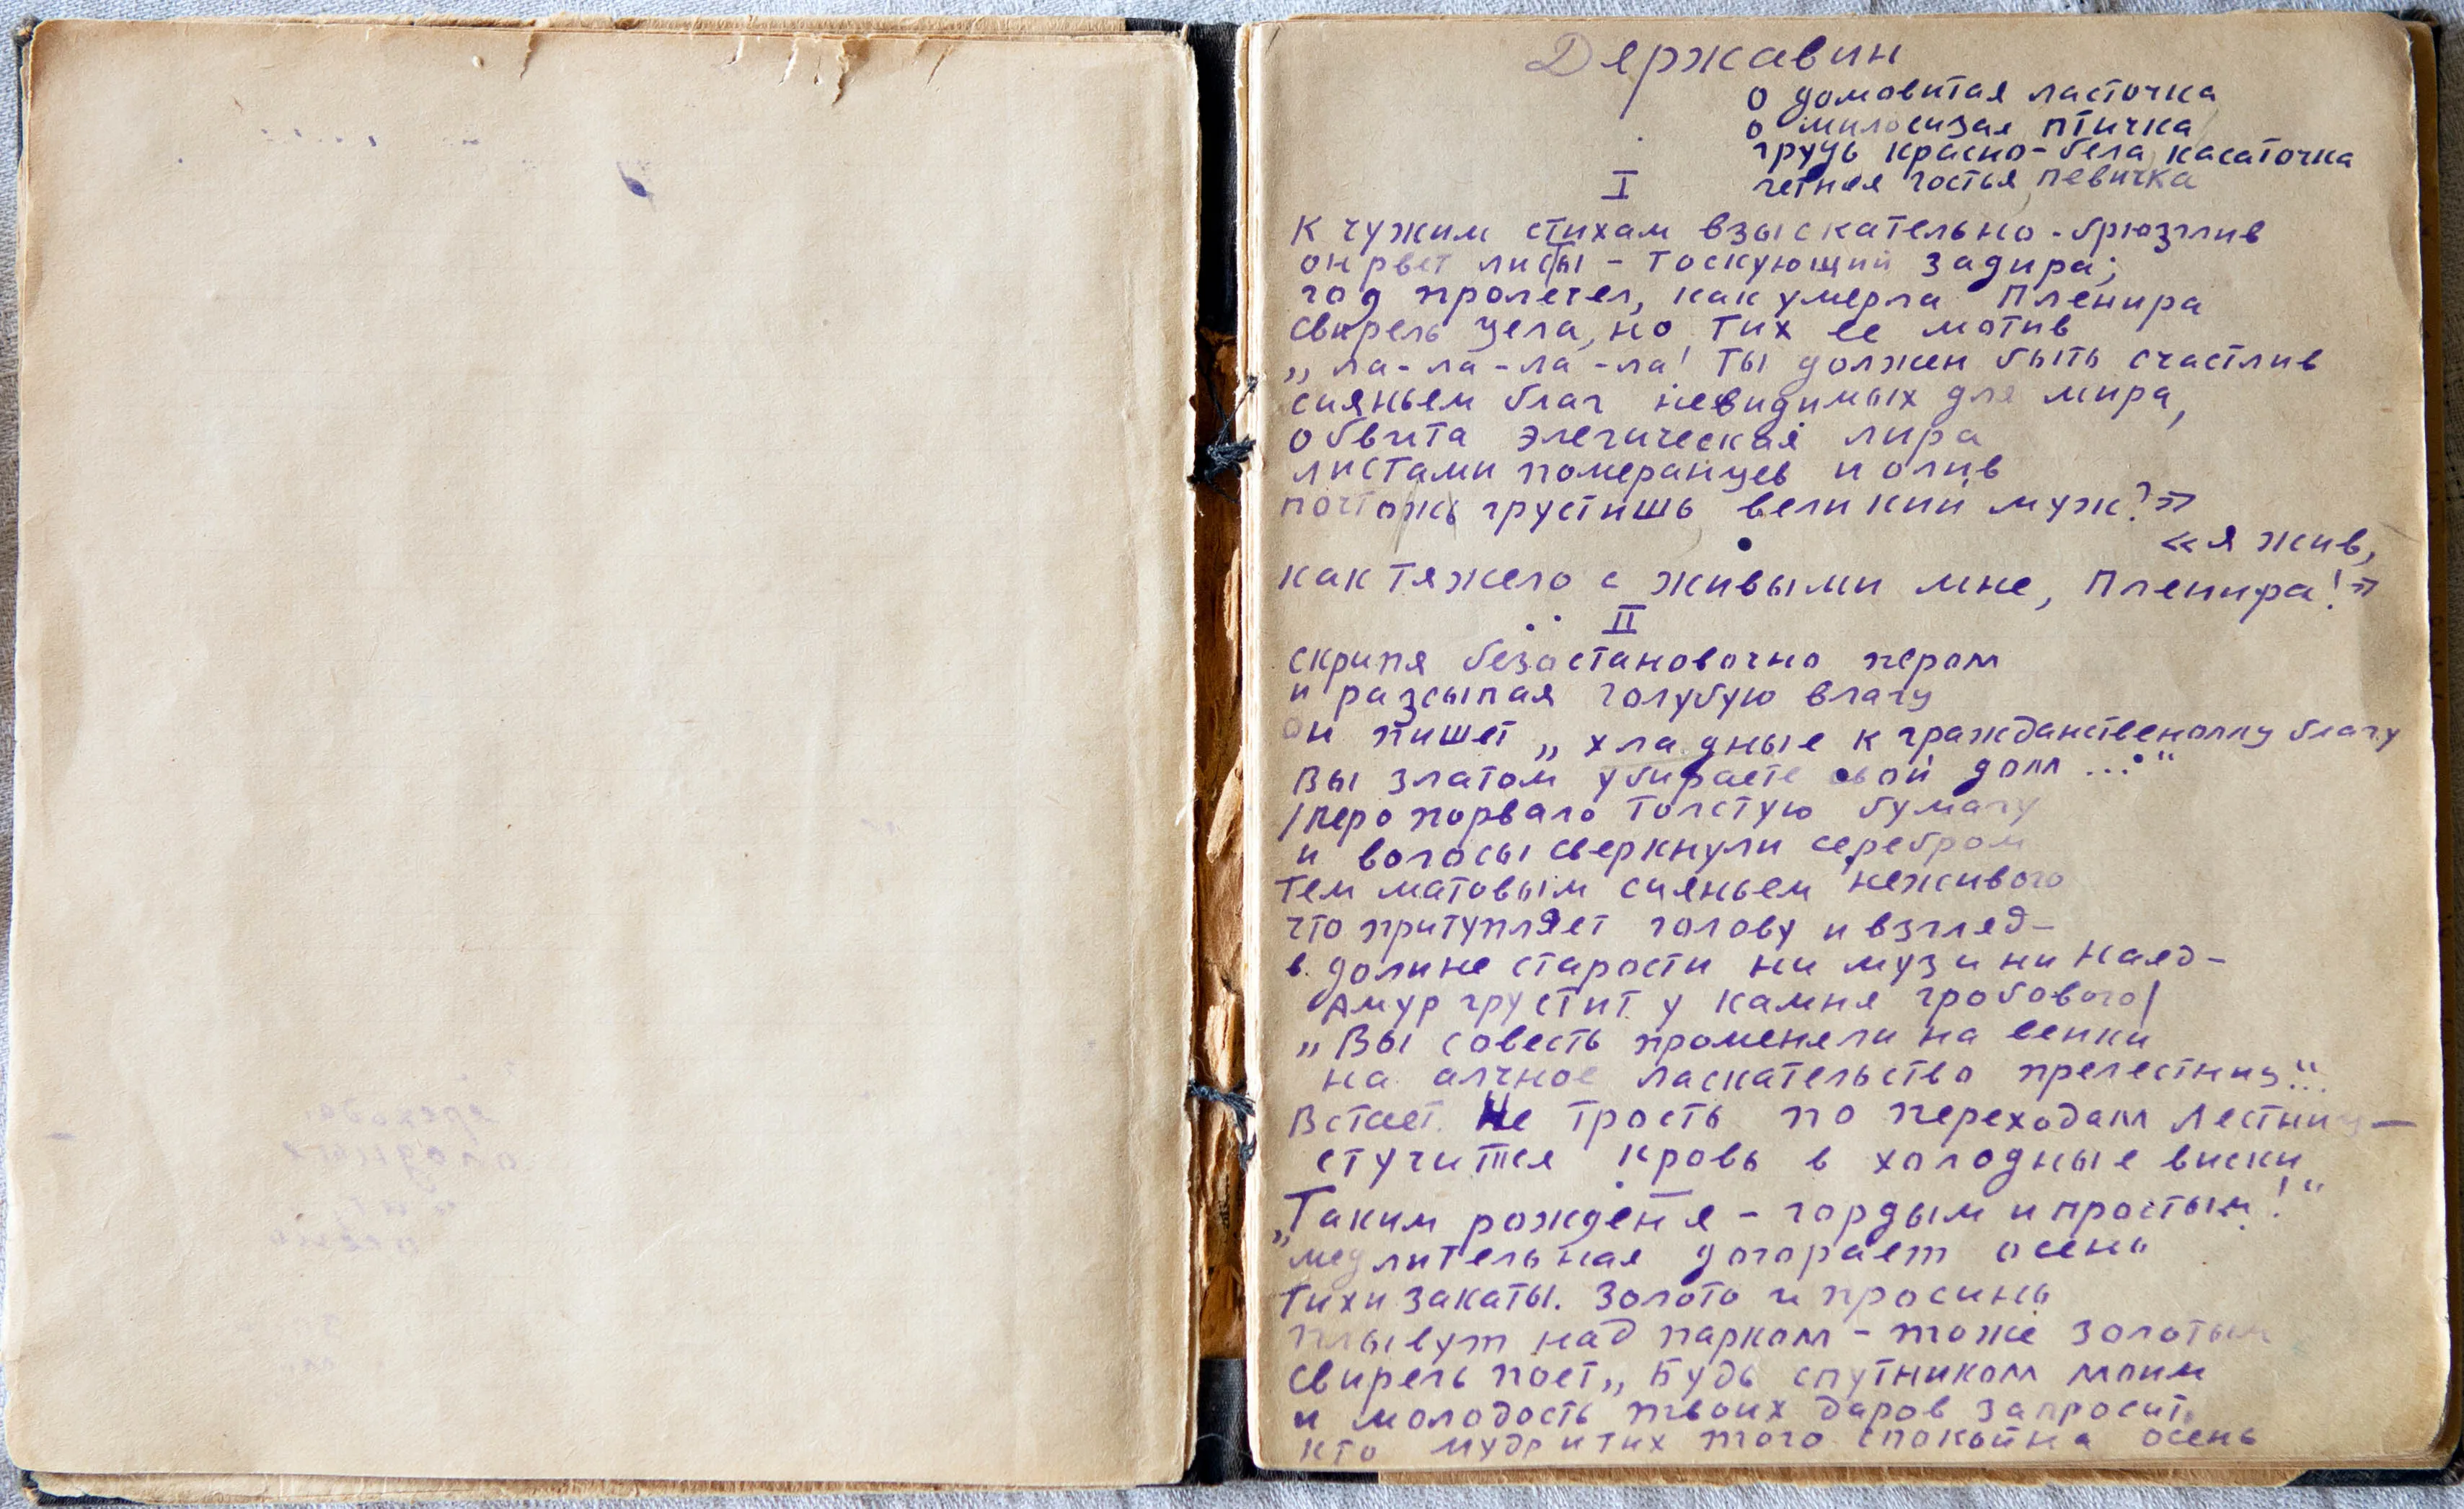 Державин
о домовитая ласточка
о милосизая птичка
грудь красно-бела, касаточка
летняя гостья, певичка
I
К чужим стихам взыскательно-брюзглив
он рвет листы - тоскующий задира;
год пролетел, как умерла Пленира
свирель цела, но тих ее мотив
„ ла-ла-ла-ла! Ты должен быть счастлив
сияньем благ невидимых для мира,
обвита элегическая лира
листами померанцев и олив
почто ж грустишь великий муж?»
«я жив,
как тяжело с живыми мне, Пленира!»
II
скрипя безостановочно пером
и разсыпая голубую влагу
он пишет „ хладные к гражданственному благу
Вы златом убираете свой дом ...“
/перо порвало толстую бумагу
и волосы сверкнули серебром
тем матовым сияньем неживого
что притупляет голову и взгляд-
в долине старости ни муз и ни Наяд-
Амур грустит у камня гробового/
„ Вы совесть променяли на венки
на алчное ласкательство прелестниц“...
Встает. Не трость по переходам лестниц —
стучится кровь в холодные виски
„Таким рожден я - гордым и простым!“
медлительная догорает осень
тихи закаты. Золото и просинь
плывут над парком - тоже золотым
свирель поет„ Будь спутником моим
и молодость твоих даров запросит,
кто мудр и тих того спокойна осень